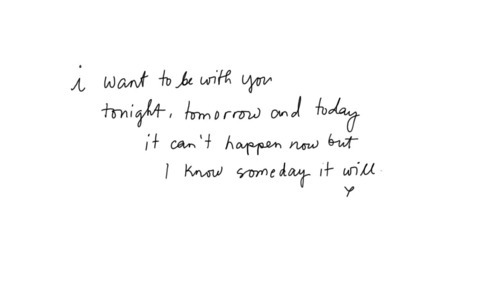 i want to be with you
tonight, tomorrow and today
it can't happen now but
I know someday it will.
x